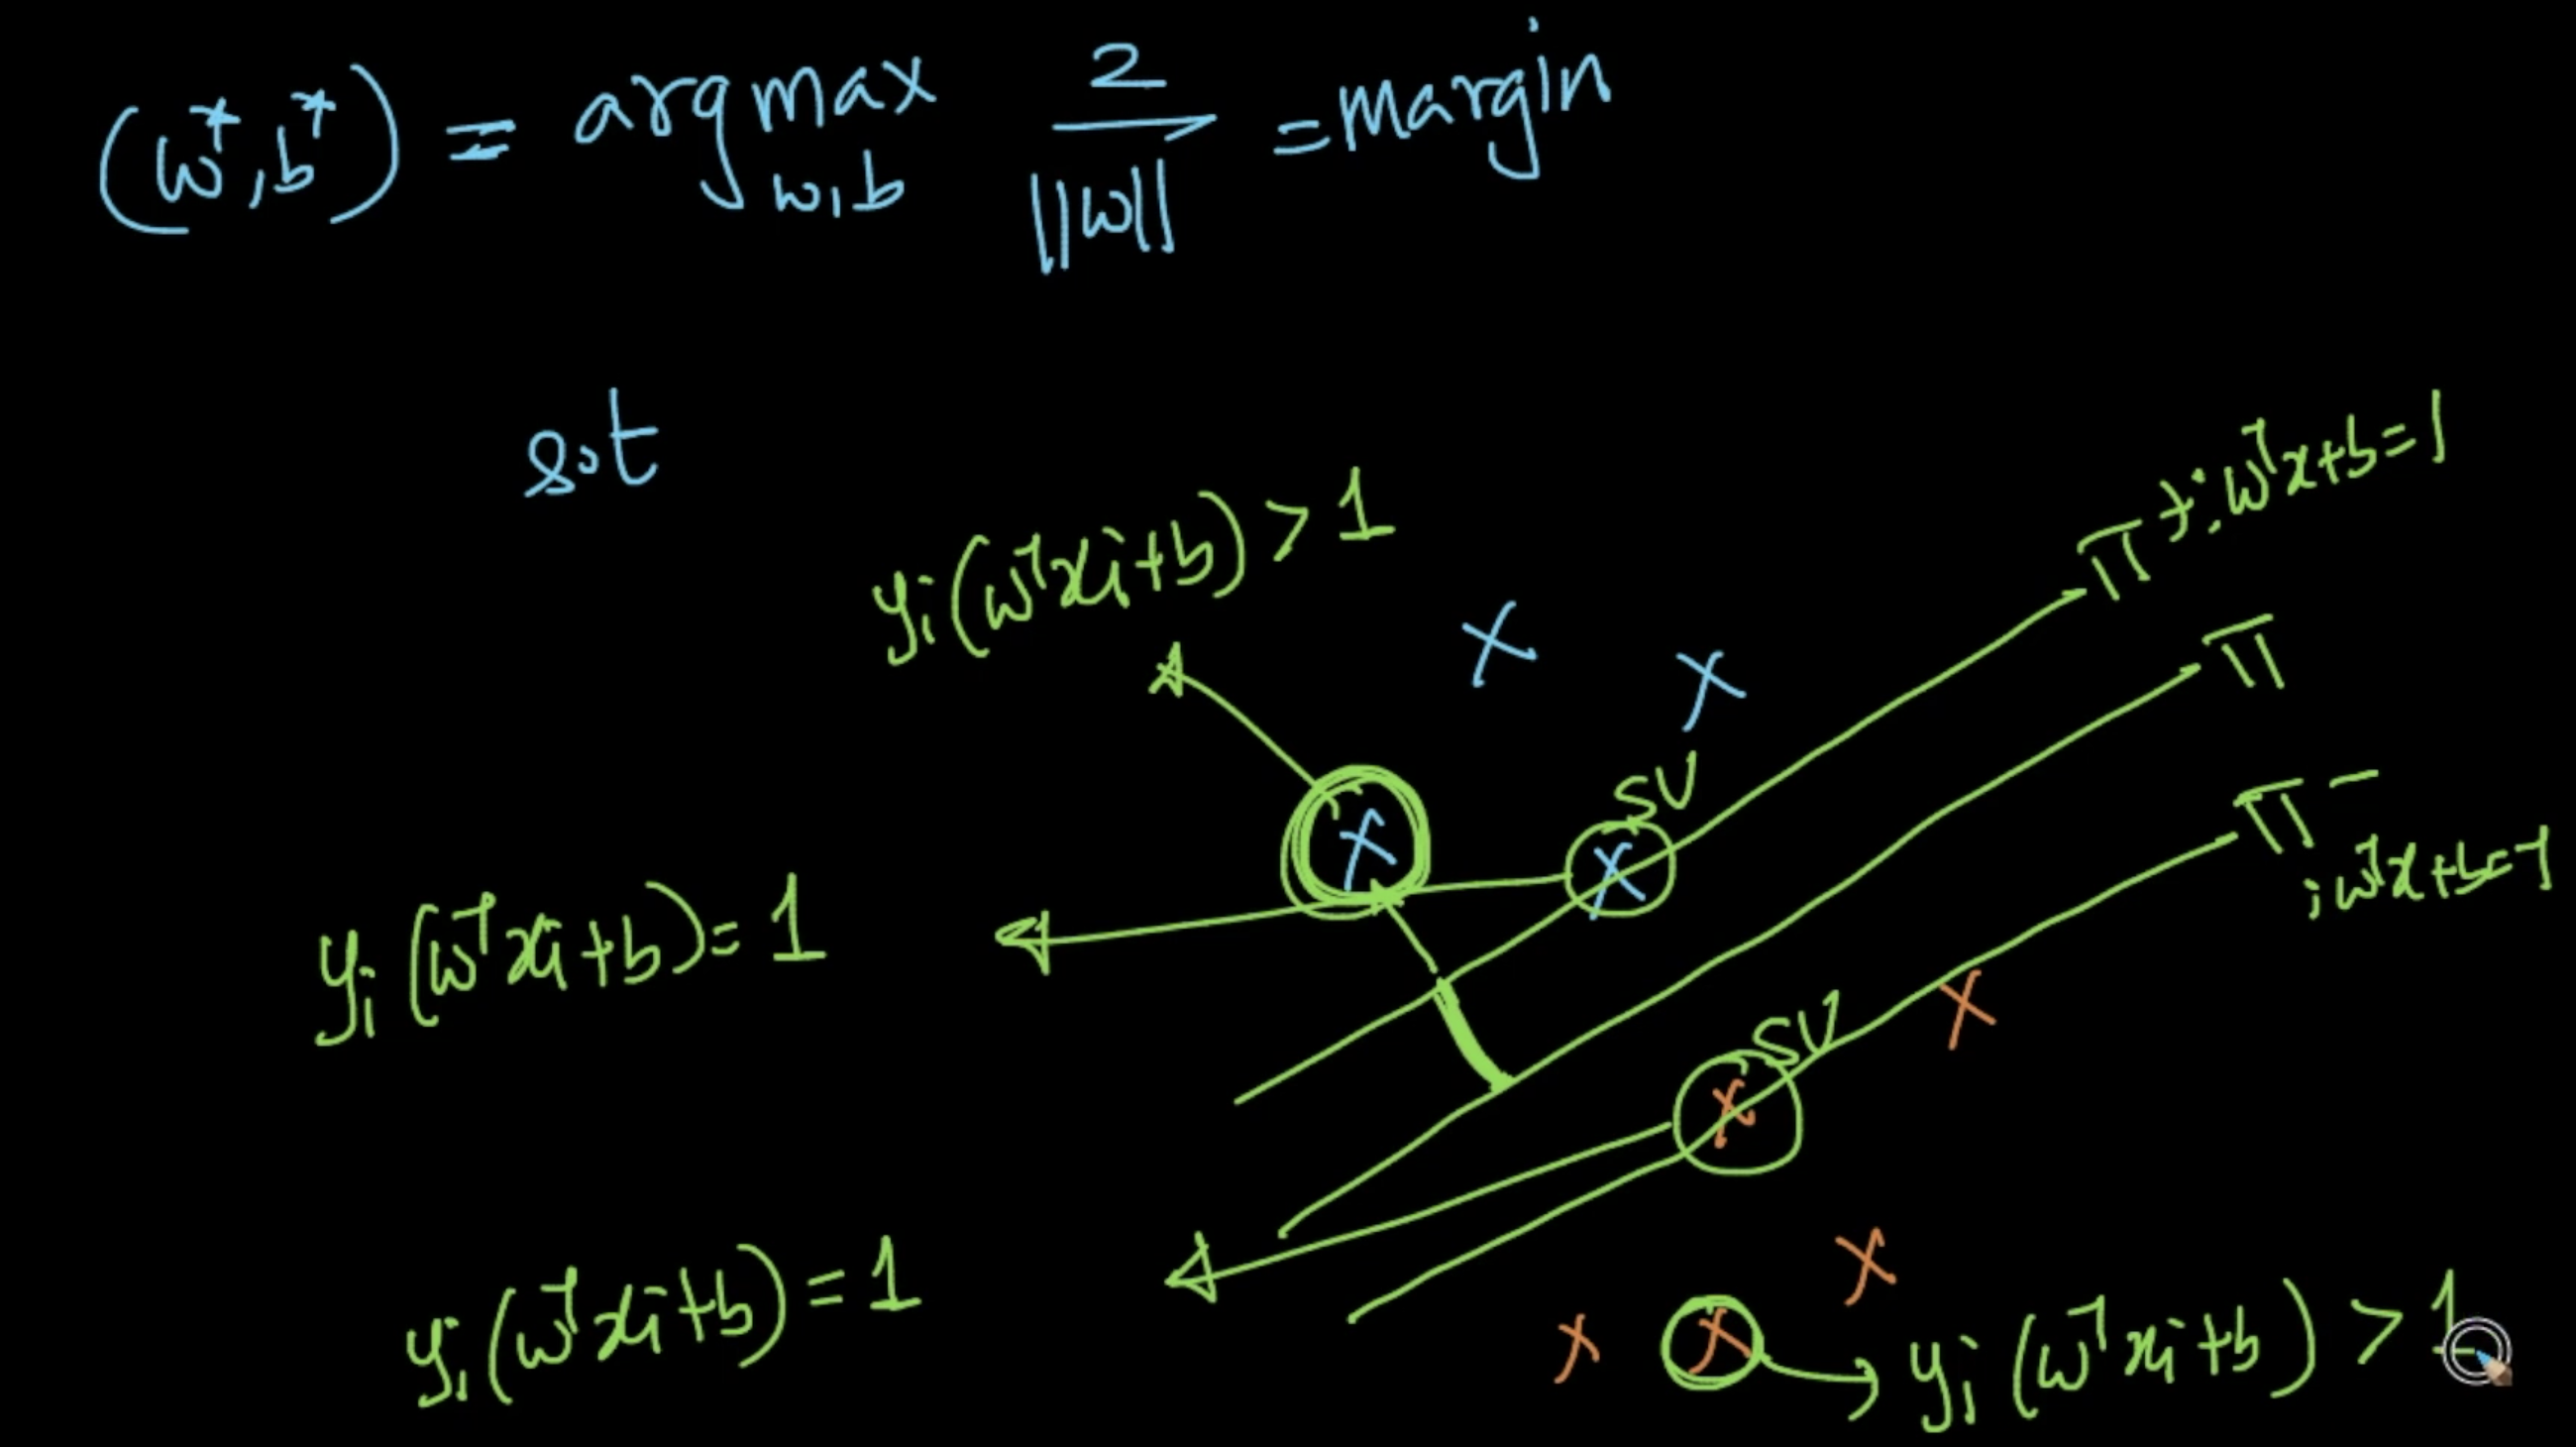 (w*, b*) = argmax w,b 2/||w|| = Margin
s.t
yi(wᵀxi+b) > 1
π+: wᵀx+b=1
π
SV
π-
; wᵀx+b=-1
yi(wᵀxi+b) = 1
SV
yi(wᵀxi+b) = 1
yi(wᵀxi+b) > 1